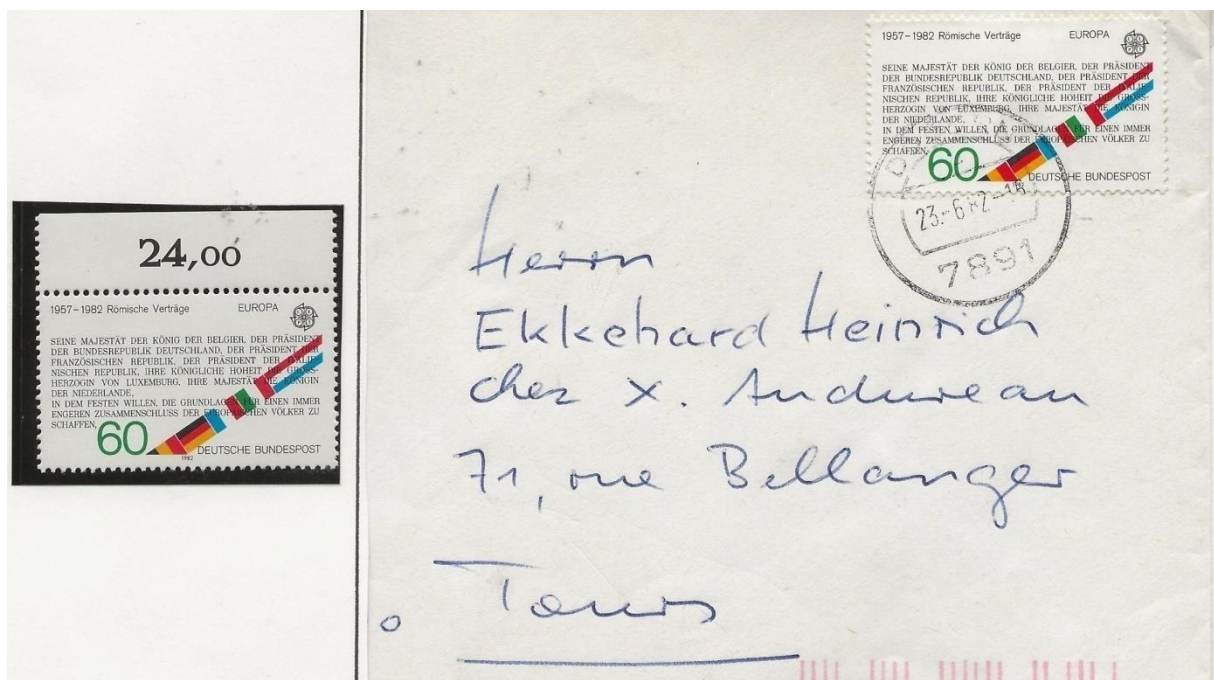 24,00
1957–1982 Römische Verträge EUROPA
SEINE MAJESTÄT DER KÖNIG DER BELGIER, DER PRÄSIDENT
DER BUNDESREPUBLIK DEUTSCHLAND, DER PRÄSIDENT DER
FRANZÖSISCHEN REPUBLIK, DER PRÄSIDENT DER ITALIE-
NISCHEN REPUBLIK, IHRE KÖNIGLICHE HOHEIT DIE GROSS-
HERZOGIN VON LUXEMBURG, IHRE MAJESTÄT DIE KÖNIGIN
DER NIEDERLANDE,
IN DEM FESTEN WILLEN, DIE GRUNDLAGEN FÜR EINEN IMMER
ENGEREN ZUSAMMENSCHLUSS DER EUROPÄISCHEN VÖLKER ZU
SCHAFFEN,
60 DEUTSCHE BUNDESPOST
1982
1957–1982 Römische Verträge EUROPA
SEINE MAJESTÄT DER KÖNIG DER BELGIER, DER PRÄSIDENT
DER BUNDESREPUBLIK DEUTSCHLAND, DER PRÄSIDENT DER
FRANZÖSISCHEN REPUBLIK, DER PRÄSIDENT DER ITALIE-
NISCHEN REPUBLIK, IHRE KÖNIGLICHE HOHEIT DIE GROSS-
HERZOGIN VON LUXEMBURG, IHRE MAJESTÄT DIE KÖNIGIN
DER NIEDERLANDE,
IN DEM FESTEN WILLEN, DIE GRUNDLAGEN FÜR EINEN IMMER
ENGEREN ZUSAMMENSCHLUSS DER EUROPÄISCHEN VÖLKER ZU
SCHAFFEN,
60 DEUTSCHE BUNDESPOST
23.-6.82-16
7891
Herrn
Ekkehard Heinrich
chez X. Andureau
71, rue Bellanger
Tours